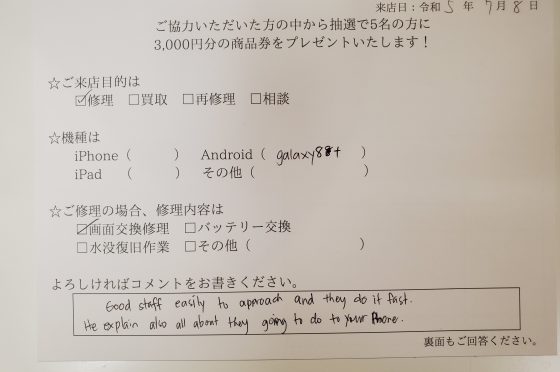 来店日：令和 5 年 7 月 8 日
ご協力いただいた方の中から抽選で5名の方に
3,000円分の商品券をプレゼントいたします！
☆ご来店目的は
☑修理 □買取 □再修理 □相談
☆機種は
iPhone（ ） Android（ galaxy8+ ）
iPad （ ） その他（ ）
☆ご修理の場合、修理内容は
☑画面交換修理 □バッテリー交換
□水没復旧作業 □その他（ ）
よろしければコメントをお書きください。
Good staff easily to approach and they do it fast.
He explain also all about they going to do to your Phone.
裏面もご回答ください。